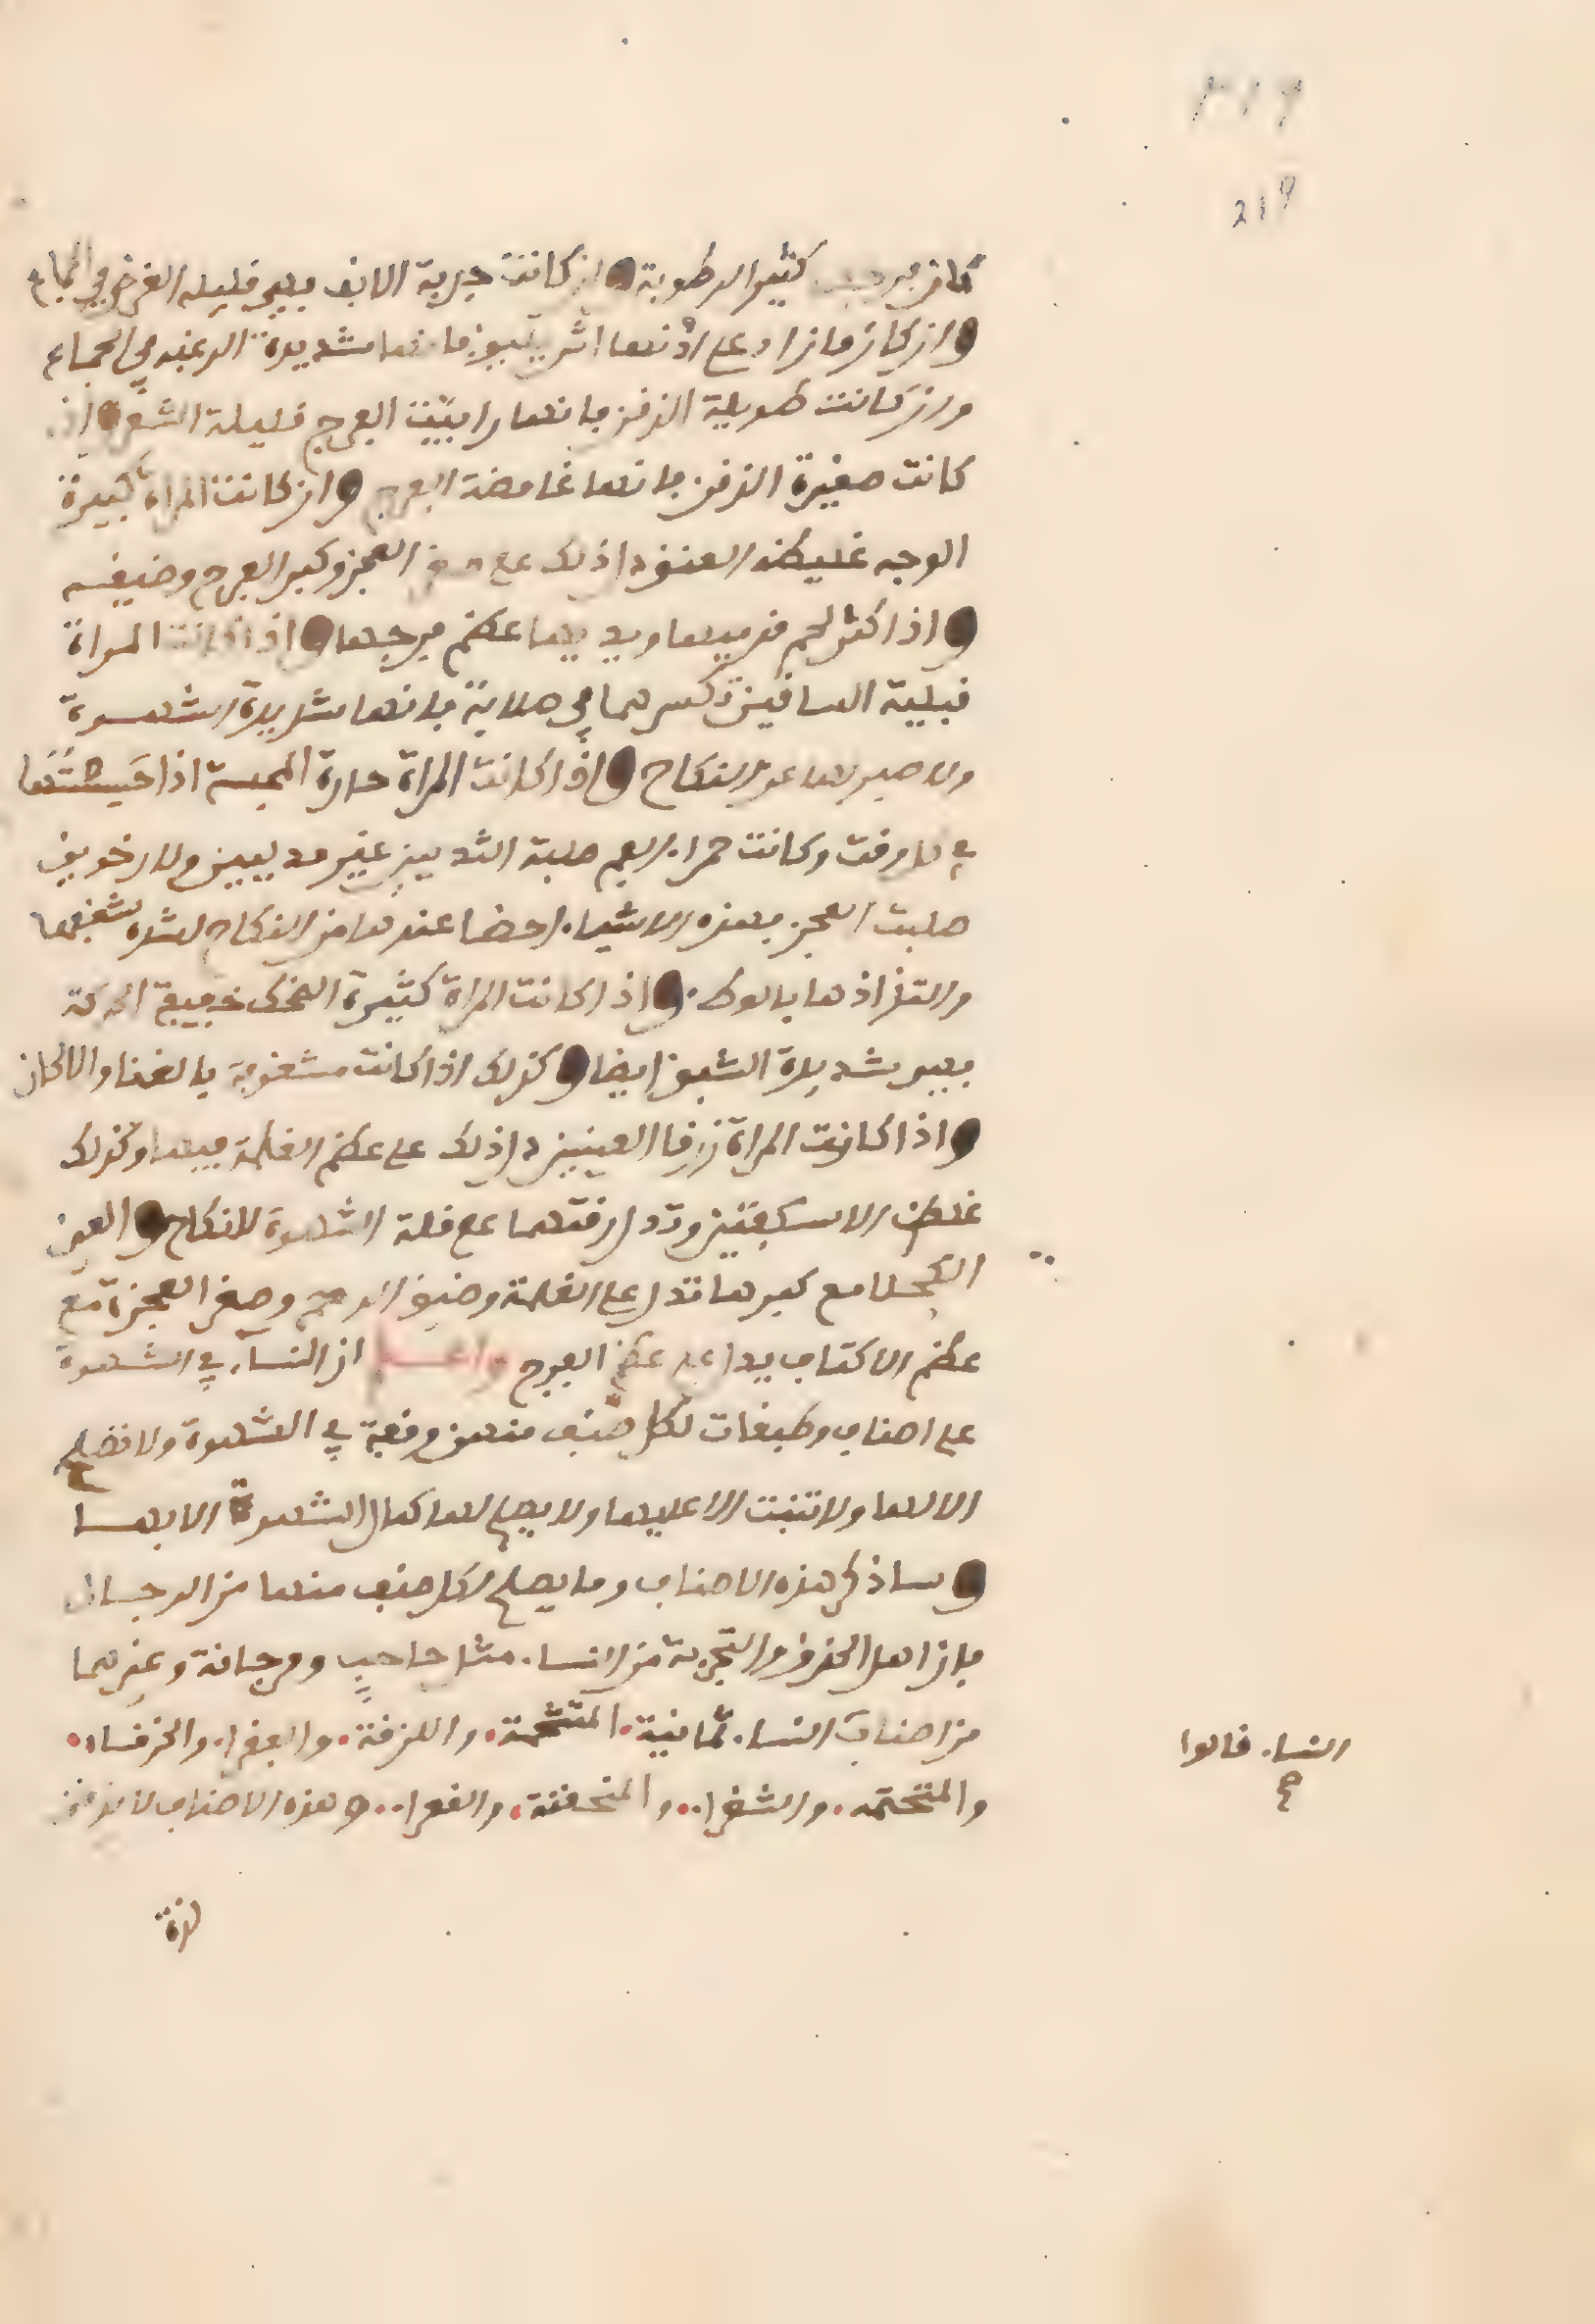 219
كان فرجها كثير الرطوبة وان كانت جدبة الانف فهي قليلة الغرض في الجماع
وان كان ما زاد على اذنها اثر فانها شديدة الرغبة في الجماع
وان كانت طويلة الذقن فانها رابية الفرج قليلة الشعر وان
كانت صغيرة الذقن فانها غامضة الفرج وان كانت المراة كبيرة
الوجه غليظة العنق دل ذلك على العجز وكبر الفرج وضيقه
واذا كثر لحم قدميها ويديها عظم فرجها واذا كانت المراة
الساقين في صلابة فانها شديدة الشهوة
ولا صبر لها عن النكاح واذا كانت المراة حارة المجسة اذا
في كل وقت وكانت حمراء الفم صلبة الثديين غير
صلبت العجز فهذه الاشياء احضا عندها من النكاح لشدة شغفها
والتذاذها بالوطء واذا كانت المراة كثيرة الضحك خفيفة الحركة
فهي شديدة الشبق ايضا وكذلك اذا كانت مشغوفة بالغنا والالحان
واذا كانت المراة زرقا العينين دل ذلك على عظم الغلمة فيها وكذلك
غلظ الاسكفتين وتدل رقتهما على قلة الشهوة للنكاح والعين
الكحلا مع كبرها تدل على الغلمة وضيق الرحم وصغر العجزة مع
عظم الاكتاف يدل على عظم الفرج واعلم ان النساء في الشهوة
على اصناف وطبقات لكل صنف منهن رقبة في الشهوة ولا تصلح
الا لها ولا تثبت الا عليها ولا يصلح لها كمال الشهوة الا بها
وساذكر هذه الاصناف وما يصلح لكل صنف منها من الرجال
فان اهل الحذق والتجربة من النساء مثل حاحب ومرجانة وغيرهما
من اصناف النساء ثمانية المتشحمة واللزقة والعفرا والخرقساء
والمتحتمه والشفرا والمنحفنة والقعرا وهذه الاصناف
النساء قالوا
صح